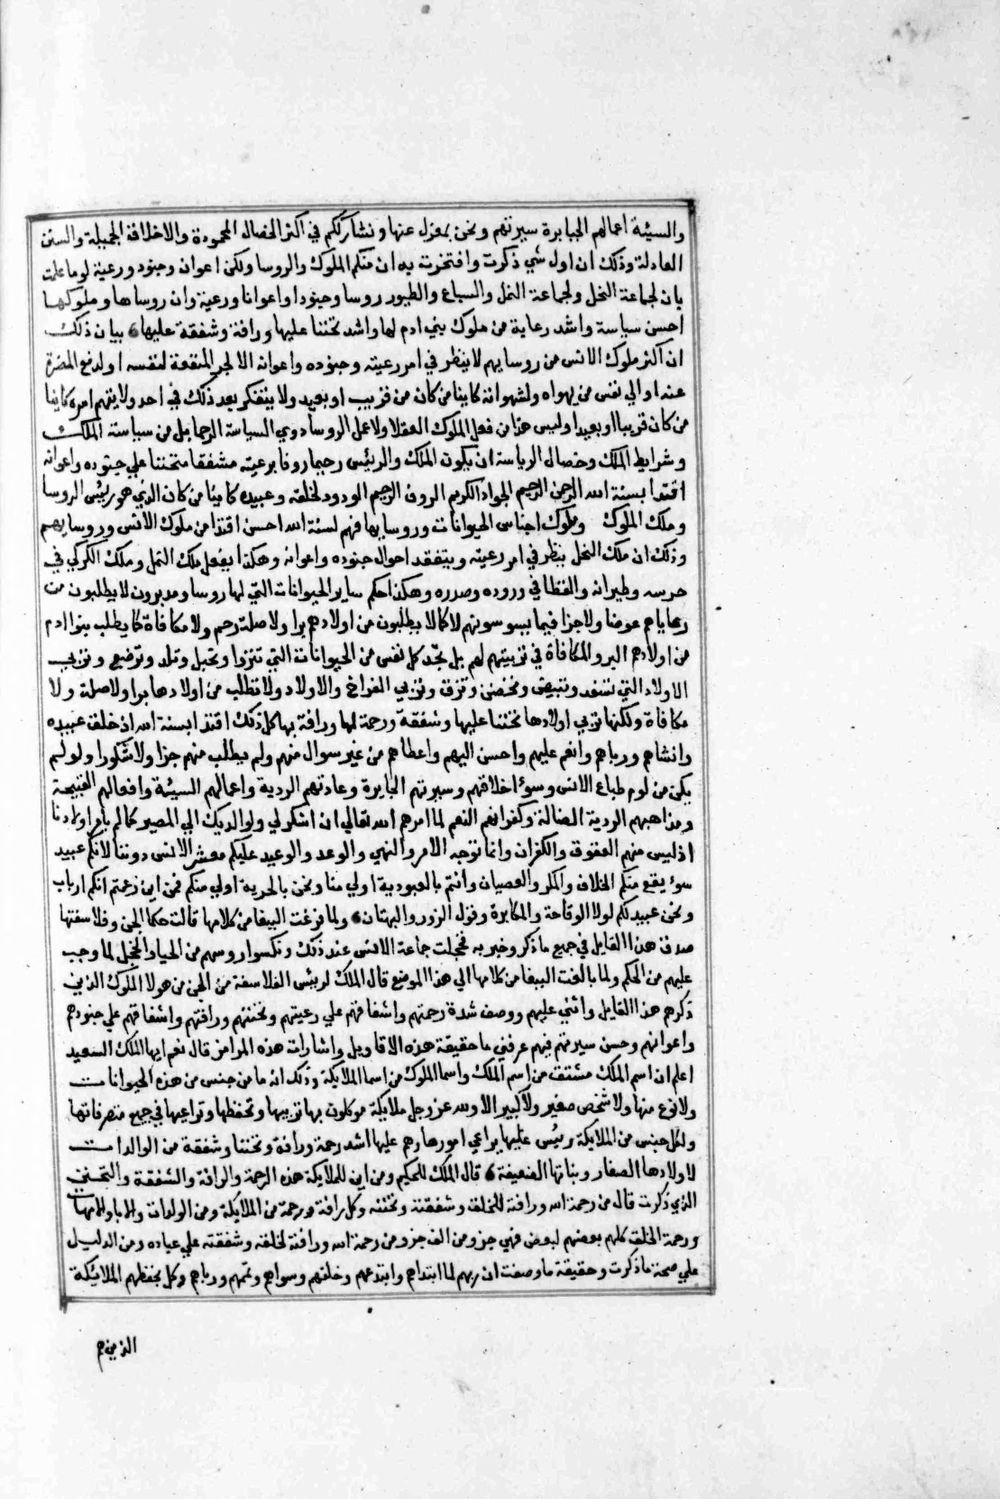 والسيئة اعمالهم الجبابرة سيرتهم ونحن بمعزل عنها ونشارككم في اكثر الخصال المحمودة والاخلاق الجميلة والسنن
العادلة وذلك ان اول شي ذكرت وافتخرت به ان منكم الملوك والروسا ولكن اعوان وجنود ورعية لو ما علمت
بان لجماعة النحل ولجماعة النمل والسباع والطيور روسا وجنودا واعوانا ورعية وان روساها وملوكها
احسن سياسة واشد رعاية من ملوك بني ادم لها واشد تحننا عليها ورافة وشفقة عليها بيان ذلك
ان اكثر ملوك الانس من روسايهم لا ينظر في امر رعيته وجنوده واعوانه الا لجر المنفعة لنفسه او لدفع المضرة
عنه او الي نفس من يهواه ولشهواته كاينا من كان من قريب او بعيد ولا يتفكر بعد ذلك في احد ولا يتهم امره كاينا
من كان قريبا او بعيدا وليس هذا من فعل الملوك العقلا ولا عمل الروسا ذوي السياسة الرحما بل من سياسة الملك
وشرايط الملك وخصال الرياسة ان يكون الملك والرئيس رحيما روفا برعيته مشفقا متحننا علي جنوده واعوانه
اقتدا بسنة الله الرحمن الرحيم الجواد الكريم الروف الرحيم الودود لخلقه وعبيده كاينا من كان الذي هو رئيس الروسا
وملك الملوك وملوك اجناس الحيوانات وروسايها فهم لسنة الله احسن اقتدا من ملوك الانس وروسايهم
وذلك ان ملك النحل ينظر في امر رعيته ويتفقد احوال جنوده واعوانه وهكذا يفعل ملك النمل وملك الكركي في
حرسه وطيرانه والقطا في وروده وصدره وهكذا حكم ساير الحيوانات التي لها روسا ومدبرون لا يطلبون من
رعاياهم عوضا ولا جزا فيما يسوسونهم لا كما لا يطلبون من اولادهم برا ولا صلة رحم ولا مكافاة كما يطلب بنوا ادم
من اولادهم البر والمكافاة في تربيتهم لهم بل نجد كل نفس من الحيوانات التي تنزوا وتحبل وتلد وترضع وتربي
الاولاد التي تسفد وتبيض وتحضن وتزق وتربي الفراخ والاولاد ولا تطلب من اولادها برا ولا صلة ولا
مكافاة ولكنها تربي اولادها تحننا عليها وشفقة ورحمة لها ورافة بها كل ذلك اقتدا بسنة الله اذ خلق عبيده
وانشاهم ورباهم وانعم عليهم واحسن اليهم واعطاهم من غير سوال منهم ولم يطلب منهم جزا ولا شكورا ولو لم
يكن من لوم طباع الانس وسوء اخلاقهم وسيرتهم الجايرة وعادتهم الردية واعمالهم السيئة وافعالهم القبيحة
ومذاهبهم الردية الضالة وكفرانهم النعم لما امرهم الله تعالي ان اشكر لي ولوالديك الي المصير كما لم يامر اولادنا
اذ ليس منهم العقوق والكفران وانما توجه الامر والنهي والوعد والوعيد عليكم معشر الانس دوننا لانكم عبيد
سوء يقع منكم الخلاف والمكر والعصيان وانتم بالعبودية اولي منا ونحن بالحرية اولي منكم فمن اين زعمتم انكم ارباب
ونحن عبيد لكم لولا الوقاحة والمكابرة وقول الزور والبهتان ولما فرغت الببغا من كلامها قالت حكما الجن وفلاسفتها
صدق هذا القايل في جميع ما ذكر وخبر به فخجلت جماعة الانس عند ذلك ونكسوا روسهم من الحيا والخجل لما وجب
عليهم من الحكم ولما بالغت الببغا من كلامها الي هذا الموضع قال الملك لرئيس الفلاسفة من الجن من هولا الملوك الذين
ذكرهم هذا القايل واثني عليهم ووصف شدة رحمتهم واشفاقهم علي رعيتهم وتحننهم ورافتهم واشفاقهم علي جنودهم
واعوانهم وحسن سيرتهم فيهم عرفني ما حقيقة هذه الاقاويل واشارات هذه المرامز قال نعم ايها الملك السعيد
اعلم ان اسم الملك مشتق من اسم الملك واسما الملوك من اسما الملايكة وذلك انه ما من جنس من هذه الحيوانات
ولا نوع منها ولا شخص صغير ولا كبير الا ولله عز وجل ملايكة موكلون بها تربيها وتحفظها وتراعيها في جميع متصرفاتها
ولكل جنس من الملايكة رئيس عليها يراعي امورها وهم عليها اشد رحمة ورافة وتحننا وشفقة من الوالدات
لاولادها الصغار وبناتها الضعيفة قال الملك للحكيم ومن اين للملايكة هذه الرحمة والرافة والشفقة والتحنن
الذي ذكرت قال من رحمة الله ورافته للخلق وشفقته وتحننه وكل رافة ورحمة من الملايكة ومن الوالدات والابا والامهات
ورحمة الخلق كلهم بعضهم لبعض فهي جزو من الف جزو من رحمة الله ورافته لخلقه وشفقته علي عباده ومن الدليل
علي صحة ما ذكرت وحقيقة ما وصفت ان ربهم لما ابتداهم وابتدعهم وخلقهم وسواهم وتممهم ورباهم وكل بحفظهم الملائيكة
الذين هم